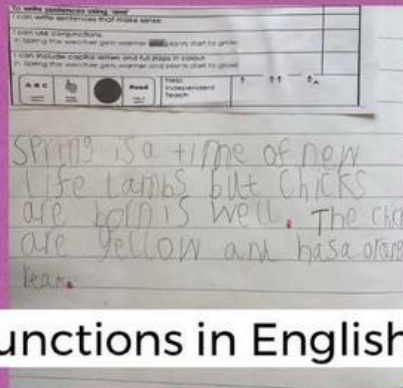 To write sentences using 'and'
I can write sentences that make sense
I can use conjunctions.
In Spring the weather gets warmer plants start to grow
I can include capital letters and full stops in colour
In Spring the weather gets warmer and plants start to grow
A B C
Read
Help
Independent
Teach
Spring is a time of new
life Lambs but Chicks
are born is well. The Chic
are yellow and has a orang
beak.
unctions in English